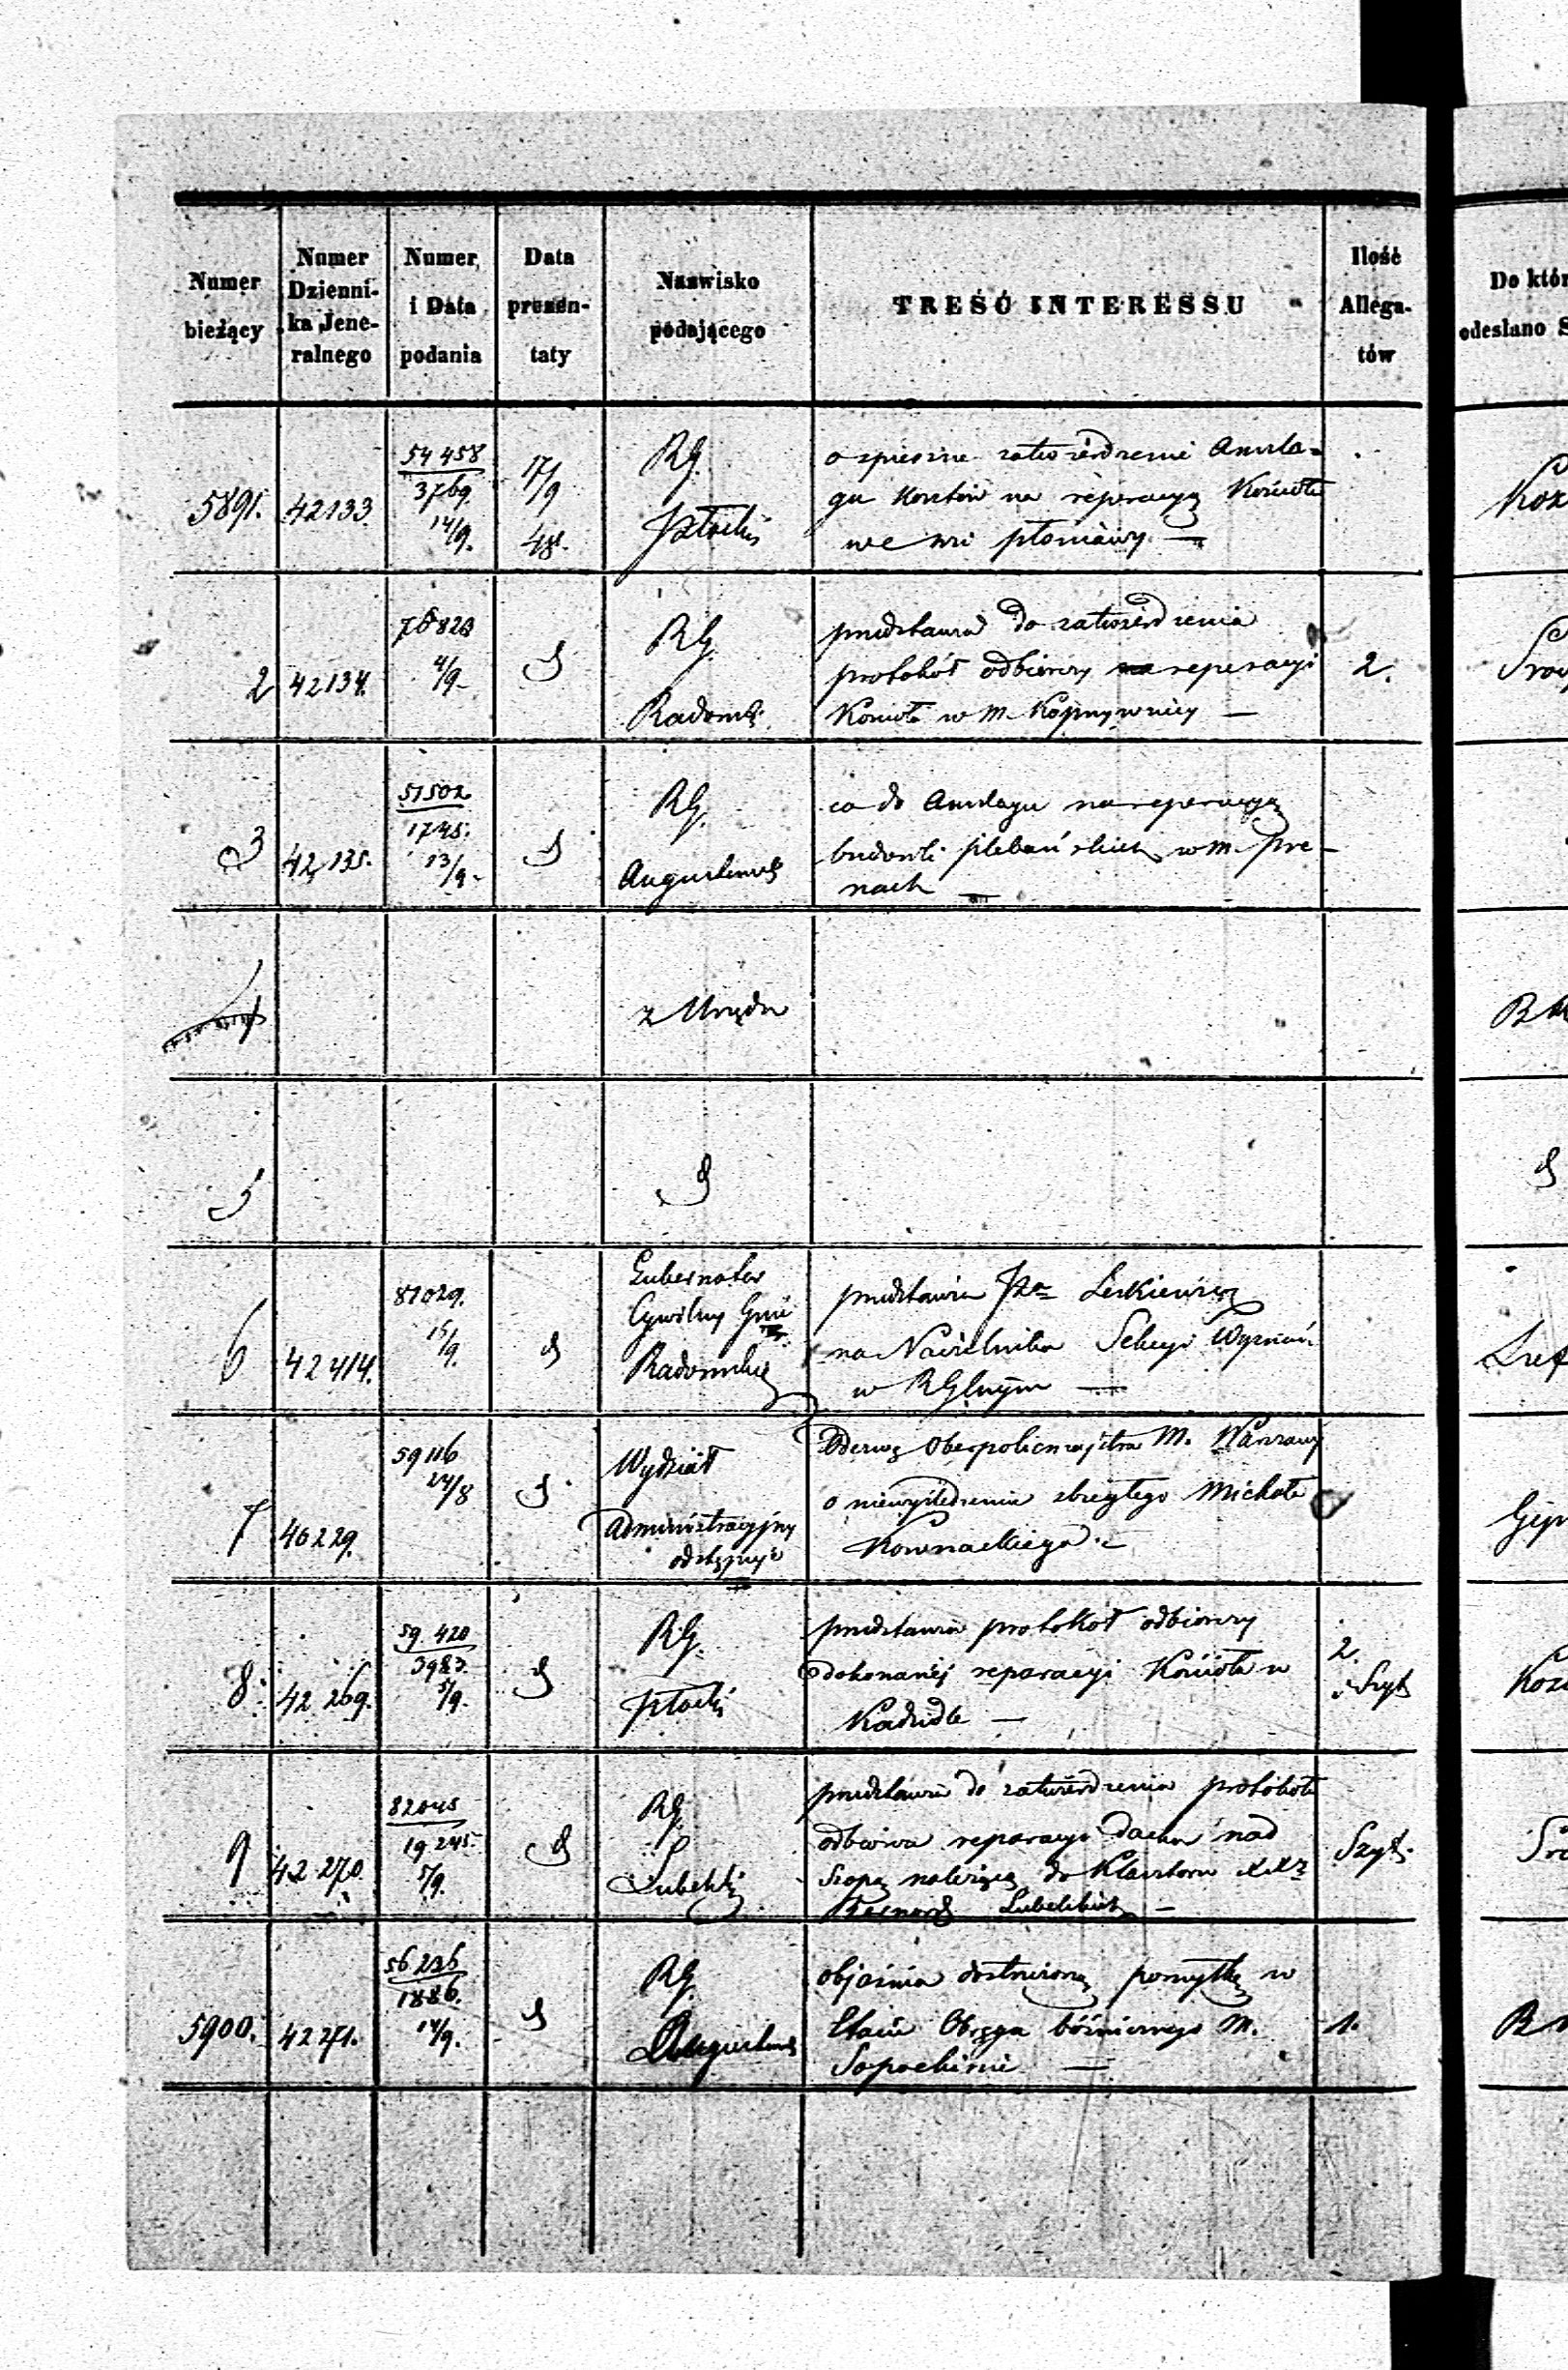 Numer bieżący
Numer Dzienni- ka Jene- ralnego
Numer i Data podania
Data prezen- taty
Nazwisko podającego
TREŚĆ INTERESSU
Ilość Allega- tów
Do któr
odesłano S
5891. 42133. 54458 3769. 14/9. 17/9 48. RG. Płocki
o spieszne zatwierdzenie Anszla-
gu kosztów na reperacyą Kościoła
we wsi płoniawy —
2 42134. 4/9 RG. Radoms. 2.
przedstawia do zatwierdzenia
protokół odbiorczy reperacyi
Kościoła w m. Koprzywnicy —
3 42135. 51502 1745. 13/9. RG. Augustows
co do Anszlagu na reperacyą
budowli plebańskich w m. Pre-
nach —
4 z Urzędu
5
6 42414. 81029. 15/9. Gubernator Cywilny Gub Radomskiej
przedstawia Leskiewicz
na Naczelnika Sekcyi Wyznań
w RGlnym —
7 40229. 59116 24/8 Wydział Administracyjny odstępuje
Odezwę Oberpolicmajstra M. Warszawy
o niewyśledzeniu zbiegłego Michała
Kownackiego. —
8. 42269. 59.420 3983. 5/9. RG. Płocki 2. Szyt
przedstawia protokół odbiorczy
dokonanéj reparacyi Kościoła w
Kadzidle —
9 42270. 82045 19245. 5/9. RG. Lubelski Szyt.
przedstawia do zatwierdzenia protokół
odbioru reparacyi dachu nad
Szopą należącą do Klasztoru XXz
Bernard Lubelskich —
5900. 42271. 56236 1886. 14/9. RG. Augustows 1.
objaśnia dostrzeżoną pomyłkę w
Etacie Okręgu bóżniczego M.
Sopockinie —